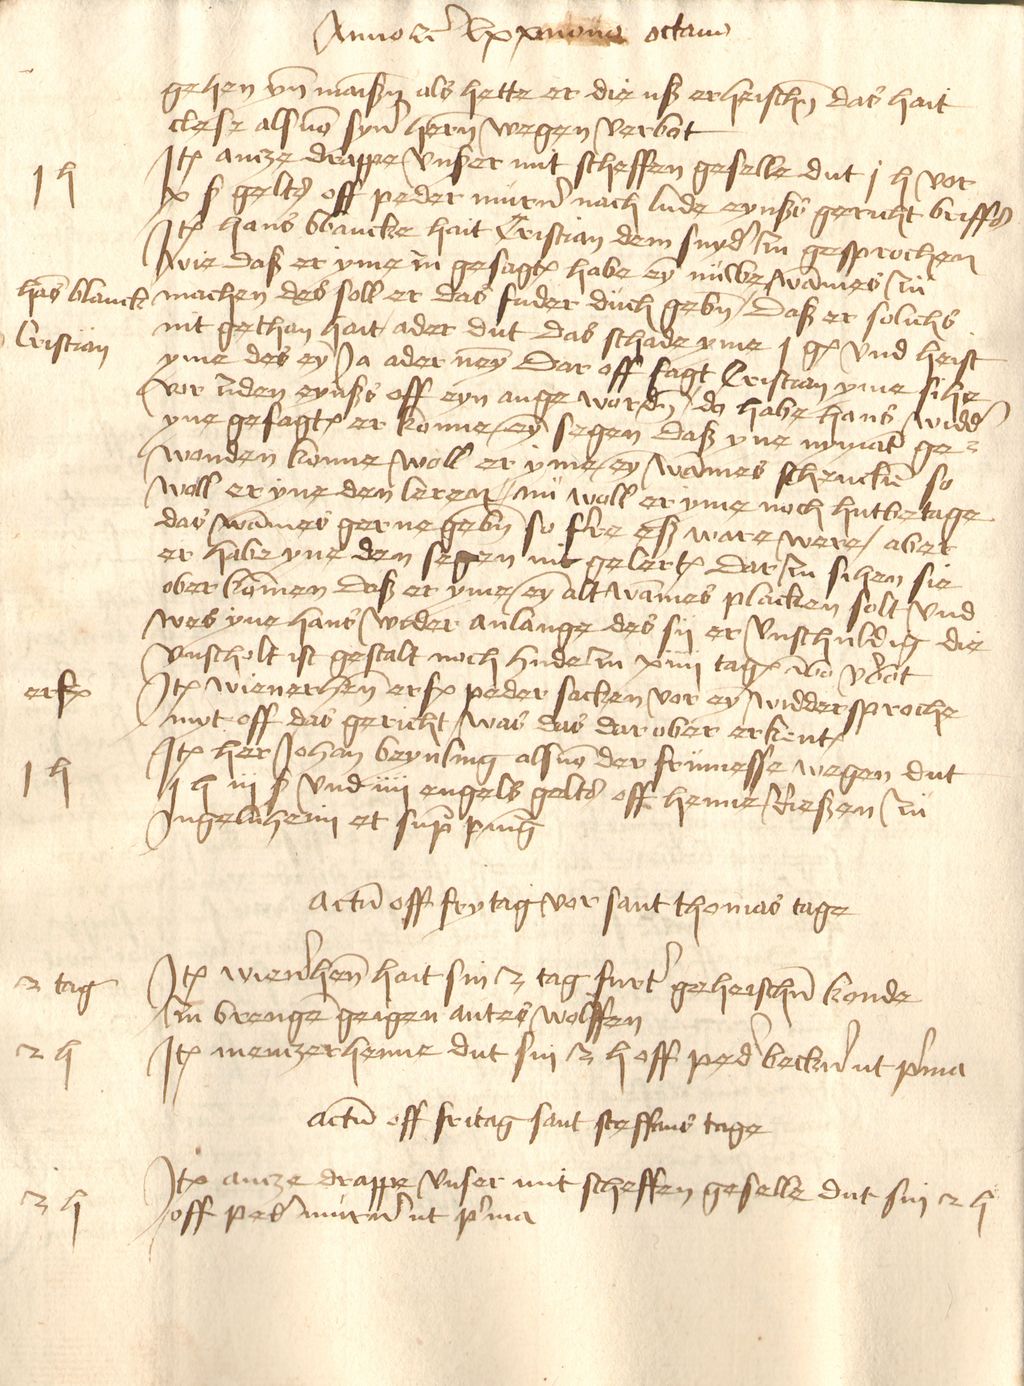 Anno zc lxxmono octauo
gehen vn maißñ als hette er die uß erheischñ das hait
clese alsuō syner hern wegen verbot
Itē antze drappe vnser mit scheffen geselle dut j h vor
j h
x ß gelts off peder murer nach lude eynßs gericht briffs
Itē hans blancke hait Cristian dem snyder zu gesprochen
wie daß er yme zu gesagt habe ey nuwe wames zu
hans blanck
machen des soll er das fuder duch gebñ daß er solichs
Cristian
nit gethan hait ader dut das schade yme j g vnd heist
yme des ey Ja ader neyn Dar off sagt Cristian yme sihe
vor ziden eynßs off eyn auge wordñ do habe hans widder
yne gesagt er konne ey segen daß yne nymāt ge-
wonden konne woll er yme ey wames schencken so
woll er yne den leren nu woll er yme noch hutbetage
das wames gerne gebñ so fere eß ware were aber
er habe yne den segen nit gelert Dar zu sihen sie
ober komen daß er yme ey alt wames placken solt vnd
wes yne hans wider anlange des sij er vnschuldig die
vnscholt ist gestalt noch hude zu xiiij tag vō vbot
erfx
Itē wienerhen erfx peder sacken vor ey widdersproche
myt off das gericht was das dar ober erkent
Itē her Johan beynling alsuō der frūmesse wegen dut
j h
j h iij ß vnd iiij engels gelts off henne Rießen zu
Ingelnheim et sup ping
Actū off frytag vor sant thomas tage
2 tag
Itē wienerhen hait sin 2 tag furt geheischñ konde
zu brenge geigen antes wolffen
2 h
Itē mentzerhenne dut sin 2 h off peder becker ut pma
Actū off fritag sant steffans tage
2 h
Itē antze drappe vnser mit scheffen geselle dut sin 2 h
off peder murer ut pma